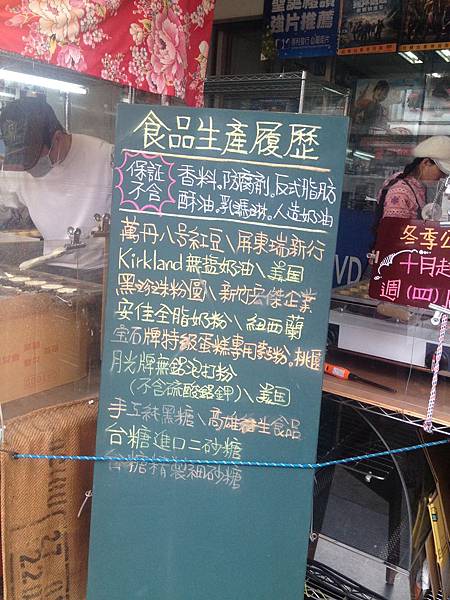 食品生產履歷
保証
不含
香料。防腐劑。反式脂肪
酥油。乳瑪琳。人造奶油
萬丹八号紅豆\屏東瑞新行
Kirkland無鹽奶油\美國
黑珍珠粉圓\新竹宏傑企業
安佳全脂奶粉\紐西蘭
宝石牌特級蛋糕專用麥粉。桃園
月光牌無鋁泡打粉
(不含硫酸鋁鉀)\美国
手工純黑糖\高雄養生食品
台糖進口二砂糖
台糖精製細砂糖
冬季公
十月起
週(四)
VD